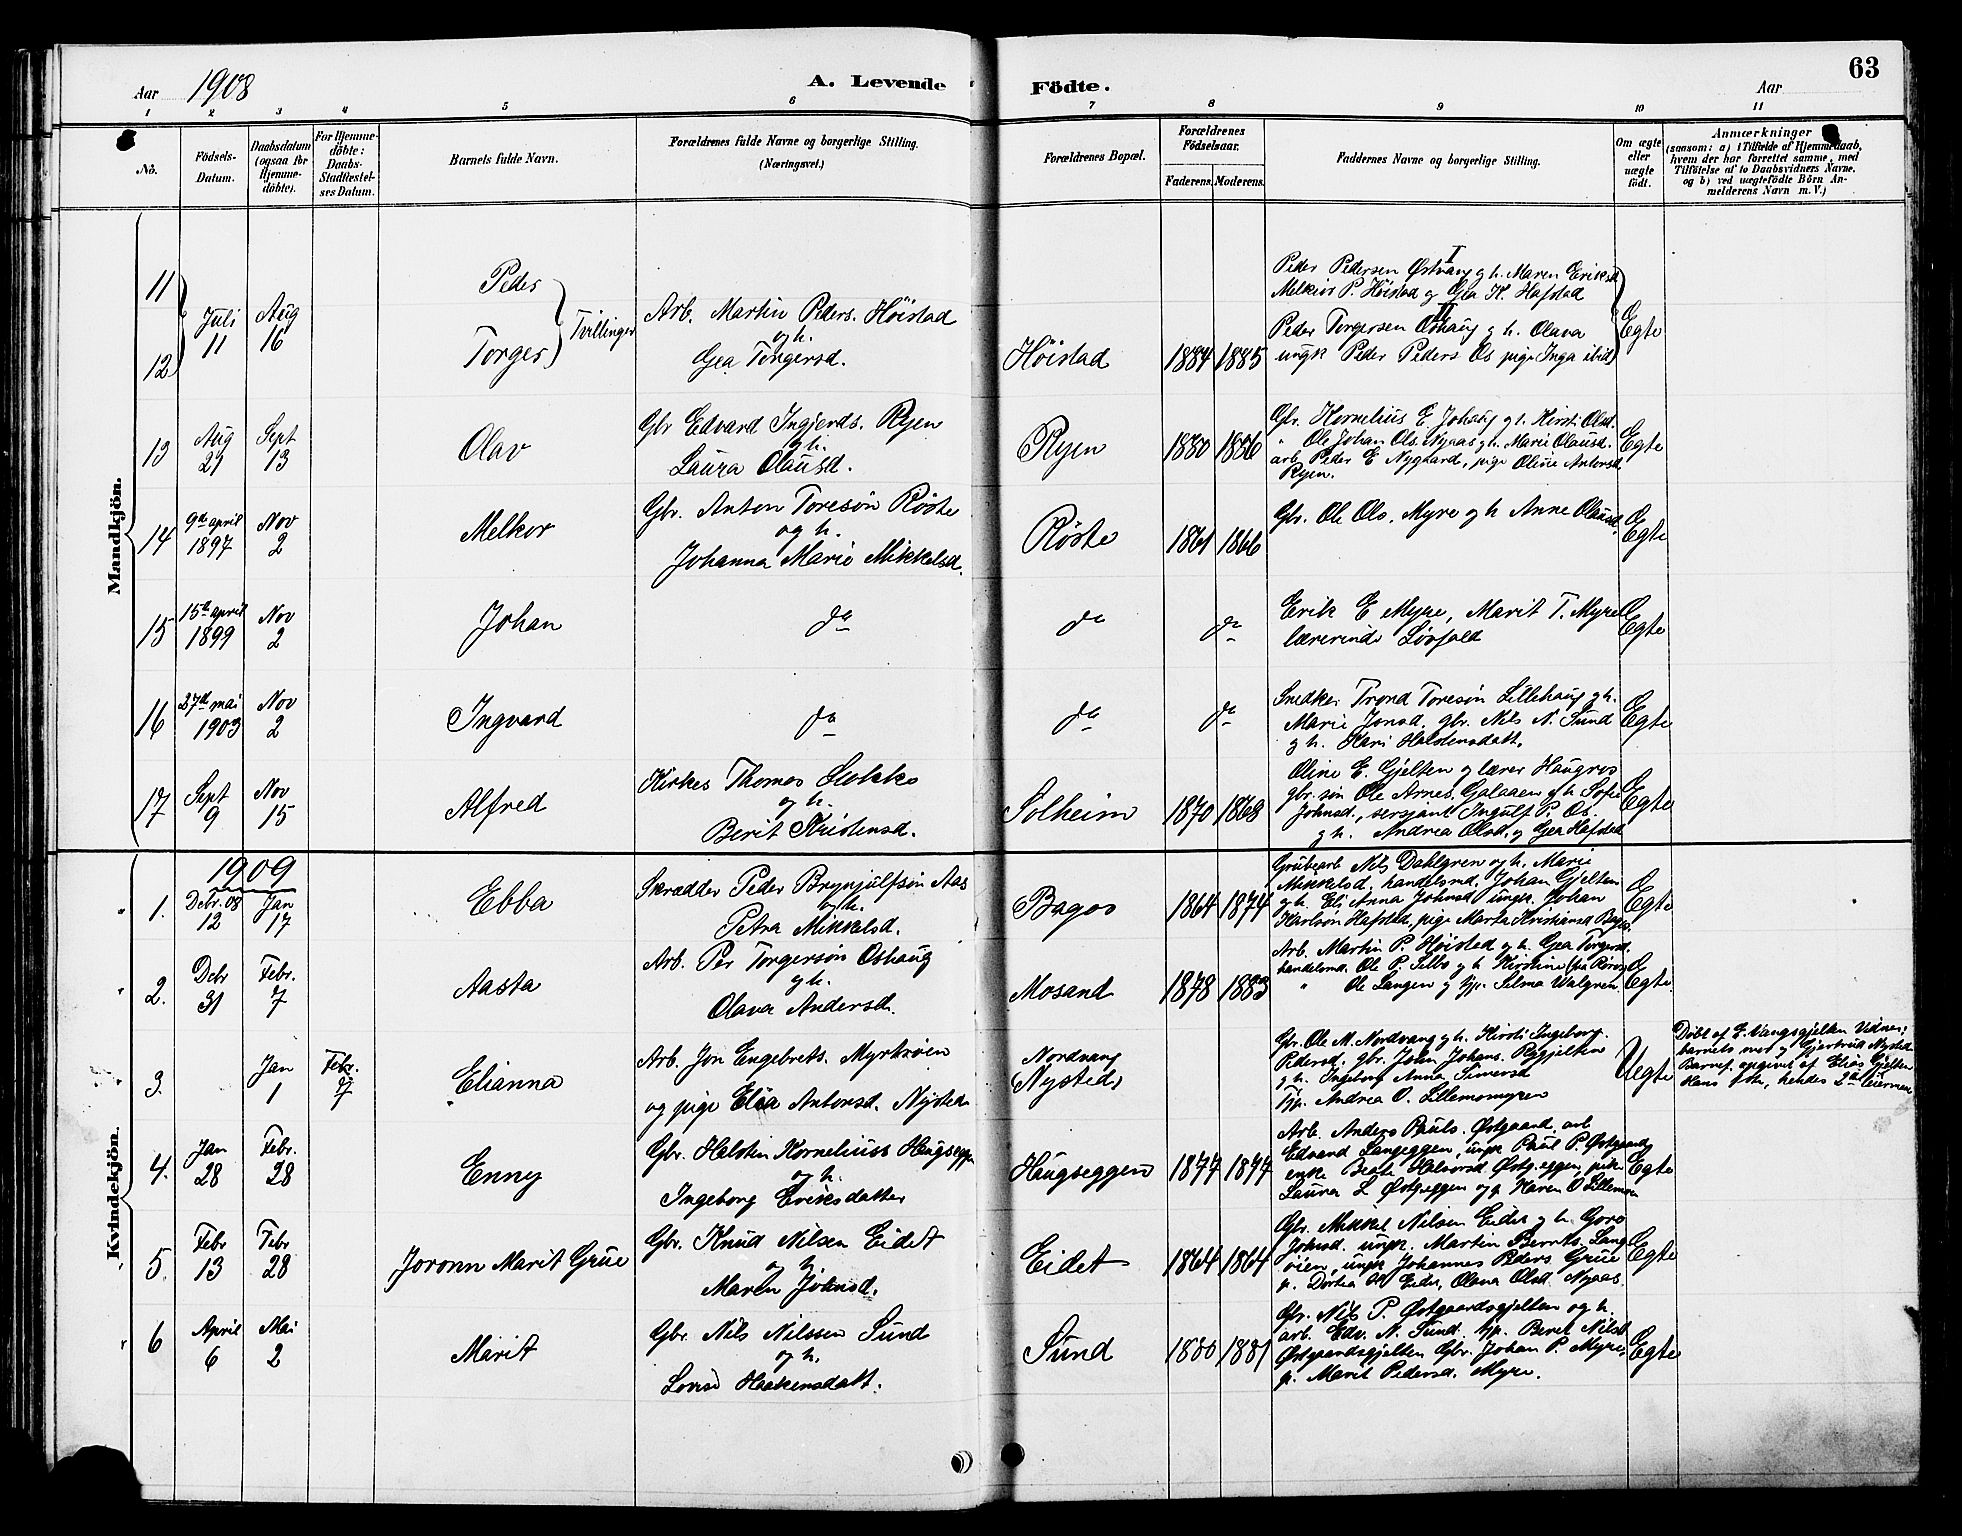 Aar 1908
A. Levende
Födte.
Aar
63
1 2 3 4 5 6 7 8 9 10 11
No.
Födsels-
Datum.
Daabsdatum
(ogsaa for
Hjemme-
döbte).
For Hjemme-
döbte:
Daabs-
Stadfæstel-
ses Datum.
Barnets fulde Navn.
Forældrenes fulde Navne og borgerlige Stilling.
(Næringsvei.)
Forældrenes Bopæl.
Forældrenes
Födselsaar.
Faderens. Moderens.
Faddernes Navne og borgerlige Stilling.
Om ægte
eller
uægte
födt.
Anmærkninger
(saasom: a) i Tilfælde af Hjemmedaab,
hvem der har forrettet samme, med
Tilföielse af to Daabsvidners Navne,
og b) ved uægtefödte Börn An-
melderens Navn m. V.)
Mandkjön.
11
12
Juli
11
Aug
16
Peder
Torger
Tvillinger
Arb. Martin Peders. Höistad
og h.
Gea Torgersd.
Höistad
1884 1885
I
Peder Pedersen Østvang g h. Maren Eriksd
Melkior P. Höistad g Gea K. Hafstad
II
Peder Torgersen Oshaug g h. Olava
ungk Peder Peders Os pige Inga ibid
Egte
13
Aug
21
Sept
13
Olav
Gbr Edvard Ingjerds. Ryen
og h.
Laura Olausd.
Ryen
1880 1886
Gbr. Kornelius E. Johaug g h. Kirsti Olsd.
" Ole Johan Ols. Nyaas g h. Marie Olausd.
arb Peder E Nygaard, pige Oline Antonsd
Ryen.
Egte
14
9de april
1897
Nov
2
Melkor
Gbr. Anton Toresön Röste
og h.
Johanna Marie Mikkelsd.
Röste
1861 1866
Gbr. Ole Ols. Myre g h Anne Olausd.
Egte
15
15de april
1899
Nov
2
Johan
do
do
do
Erik E Myre, Marit T. Myre
lærerinde Lövfald
Egte
16
27de mai
1903
Nov
2
Ingvard
do
do
do
Snedker Trond Toresön Lillehaug g h.
Marie Jonsd, gbr. Nils N. Sund
g h. Kari Halstensdatt.
Egte
17
Sept
9
Nov
15
Alfred
Kirkes Thomas Slokko
og h.
Berit Kristensd.
Solheim
1870 1868
Oline E. Gjelten g lærer Haugros
gbr.sön Ole Arnes. Galaaen g h Sofie
Johnsd., sersjant Ingulf P. Os.
g h. Andrea Olsd. g Gea Hafstad
Egte
Kvindekjön.
1909
1.
Debr. 08
12
Jan
17
Ebba
Skrædder Peder Brynjulfsön Aas
og h.
Petra Mikkelsd.
Bagos
1864 1874
Grubearb Nils Dahlgren og h. Marie
Mikkelsd, handelsmd. Johan Gjelten
g h. Eli Anna Johnsd ungk. Johan
Karlsön Hafstad, pige Marta Kristiansd Bagos
Egte
2.
Debr
31
Febr.
7
Aasta
Arb. Per Torgersön Oshaug
g h.
Olava Andersd.
Mosand
1878 1883
Arb. Martin P. Höistad g h. Gea Torgersd.
handelsmd. Ole P. Selbo g h Kirstine (fra Röros)
" Ole Langen g tjp. Selma Walgren.
Egte.
3.
Jan
1
Febr.
7
Elianna
Arb. Jon Engebrets. Myrtröen
og pige Elia Antonsd. Nysted
Nordvang
(Nysted)
Gbr. Ole M. Nordvang g h. Kirsti Ingeborg
Pedersd, gbr. John Johans. Røgjelten
g h. Ingeborg Anna Simersd
tjp. Andrea O. Lillemomyren
Uegte
Döbt af E. Vangsgjelten Vidner:
barnets mor g Gjertrud Nysted
Barnef. opgivet af Elias Gjelten
Hans 1ste, hendes 2de leiermaal
4.
Jan
28
Febr.
28
Enny
Gbr. Halsten Korneliuss Haugseggen
og h.
Ingeborg Eriksdatter
Haugseggen
1877 1877
Arb. Anders Pauls. Østgaard, arb
Edvard Langeggen, ungk Paul P. Østgaard,
enke Beate Halvorsd Østg.eggen, pike
Laura L Østg.eggen og p. Karen O Lillemoen
Egte
5.
Febr
13
Febr
28
Joronn Marit Grue
Gbr. Knud Nilsen Eidet
og h
Maren Johnsd.
Eidet
1864 1864
Gbr. Mikkel Nilsen Eidet g h. Goro
Johnsd. ungk. Martin Bernts. Lang
öien, ungk Johannes Peders Grue
p. Dortea K Eidet, Olava Olsd. Nyaas.
Egte
6
April
6
Mai
2
Marit
Gbr. Nils Nilssen Sund
og h.
Lovise Haakensdatt.
Sund
1880 1881
Gbr. Nils P. Østgaardsgjelten og h.
arb. Edv. N. Sund. tjp. Beret Nilsd
Østgaardsgjelten Gbr. Johan P. Myre,
p. Marit Pedersd. Myre.
Egte